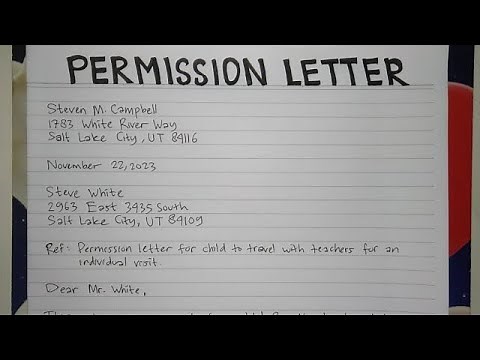 PERMISSION LETTER
Steven M. Campbell
1783 White River Way
Salt Lake City, UT 84116
November 22, 2023
Steve White
2963 East 3435 South
Salt Lake City, UT 84109
Ref: Permission letter for child to travel with teachers for an
individual visit.
Dear Mr. White,